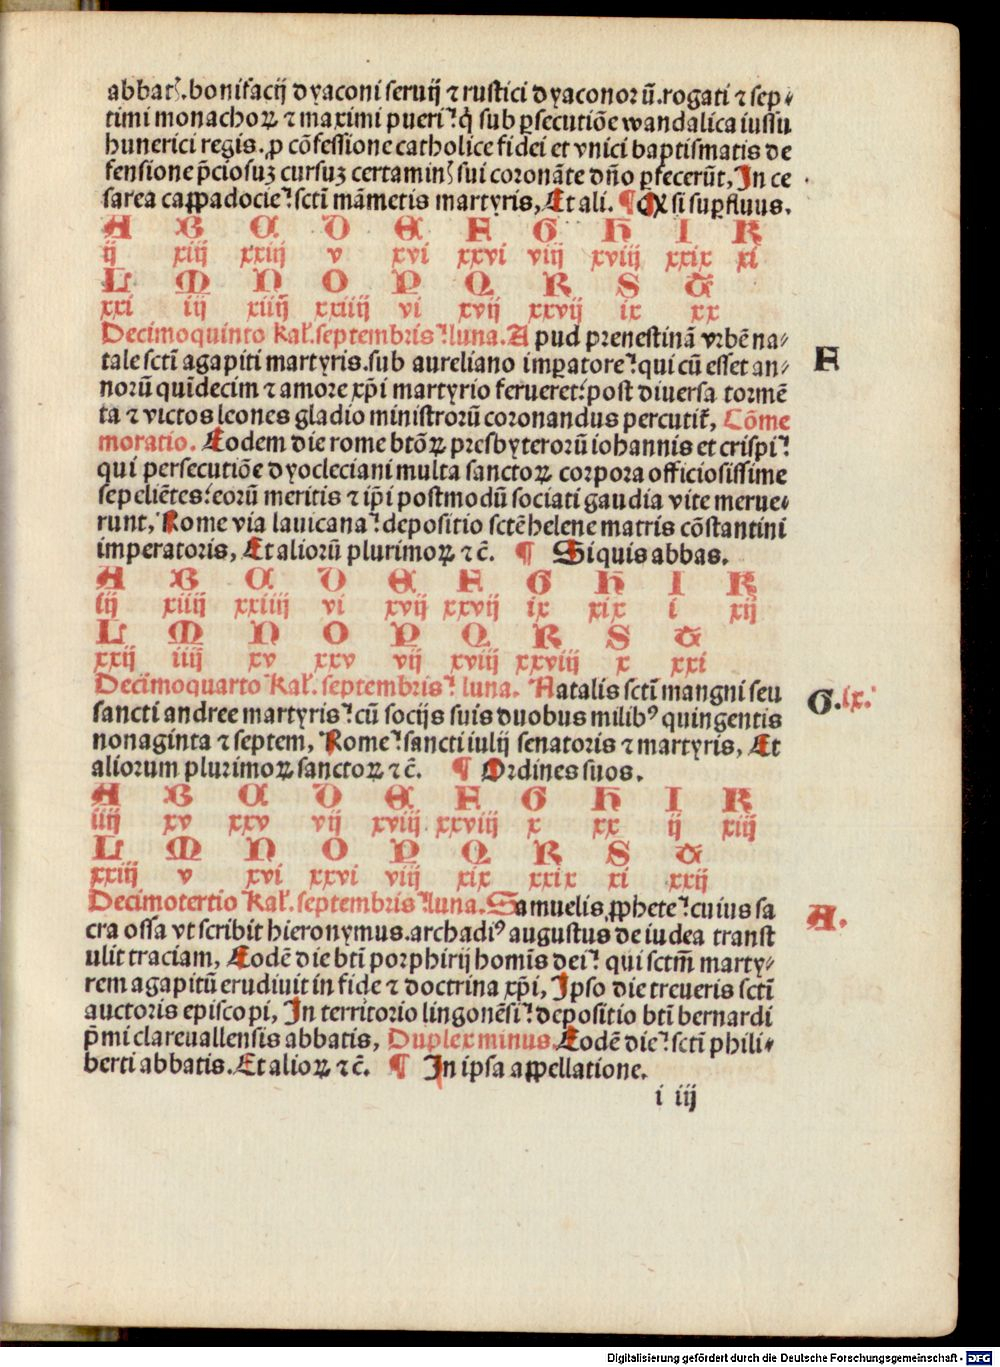 abbatꝭ.bonifacij dyaconi seruij ⁊ rustici dyaconorū.rogati ⁊ sep⸗
timi monachoꝝ ⁊ maximi pueri? q̇ sub ꝑsecutiōe wandalica iussu
hunerici regis.ꝓ cōfessione catholice fidei et vnici baptismatis de
fensione p̄ciosuꝫ cursuꝫ certaminꝭ sui coronāte dn̄o ꝑfecerūt, In ce
sarea caꝓpadocie? sctī māmetis martyris, Et ali. ¶ Qꝫ si suꝑfluus.
A B C D E F G H I K
ij xiij xxiij v xvi xxvi viij xviij xxix xi
L M N O P Q R S T
xxi iij xiiij xxiiij vi xvij xxvij ix xx
Decimoquinto kal̄.septembris? luna. Apud prenestinā vrbē na⸗
tale sctī agapiti martyris.sub aureliano imꝑatore? qui cū esset an⸗
norū quīdecim ⁊ amore xp̄i martyrio ferueret? post diuersa tormē
ta ⁊ victos leones gladio ministrorū coronandus percutit̄, Cōme
moratio. Eodem die rome btōꝝ presbyterorū iohannis et crispi?
qui persecutiōe dyocleciani multa sanctoꝝ corpora officiosissime
sepeliētes? eorū meritis ⁊ ip̄i postmodū sociati gaudia vite merue⸗
runt, Rome via lauicana? depositio sctē helene matris cōstantini
imperatoris, Et aliorū plurimoꝝ ⁊ c̄. ¶ Siquis abbas.
F
A B C D E F G H I K
iij xiiij xxiiij vi xvij xxvij ix xix i xij
L M N O P Q R S T
xxij iiij xv xxv vij xviij xxviij x xxi
Decimoquarto kal̄. septembris? luna. Natalis sctī mangni seu
sancti andree martyris? cū socijs suis duobus milibꝰ quingentis
nonaginta ⁊ septem, Rome? sancti iulij senatoris ⁊ martyris, Et
aliorum plurimoꝝ sanctoꝝ ⁊ c̄. ¶ Ordines suos.
G. lx.
A B C D E F G H I K
iiij xv xxv vij xviij xxviij x xx ij xiij
L M N O P Q R S T
xxiij v xvi xxvi viij xix xxix xi xxij
Decimotertio kal̄.septembris? luna. Samuelis ꝓphete? cuius sa
cra ossa vt scribit hieronymus.archadiꝰ augustus de iudea transt
ulit traciam, Eodē die btī porphirij homīs dei? qui sctm̄ marty⸗
rem agapitū erudiuit in fide ⁊ doctrina xp̄i, Ipso die treueris sctī
auctoris episcopi, In territorio lingonēsi? depositio btī bernardi
p̄mi clareuallensis abbatis, Duplex minus. Eodē die? sctī phili⸗
berti abbatis. Et alioꝝ ⁊ c̄. ¶ In ipsa aꝓpellatione.
A.
i iij
Digitalisierung gefördert durch die Deutsche Forschungsgemeinschaft - DFG